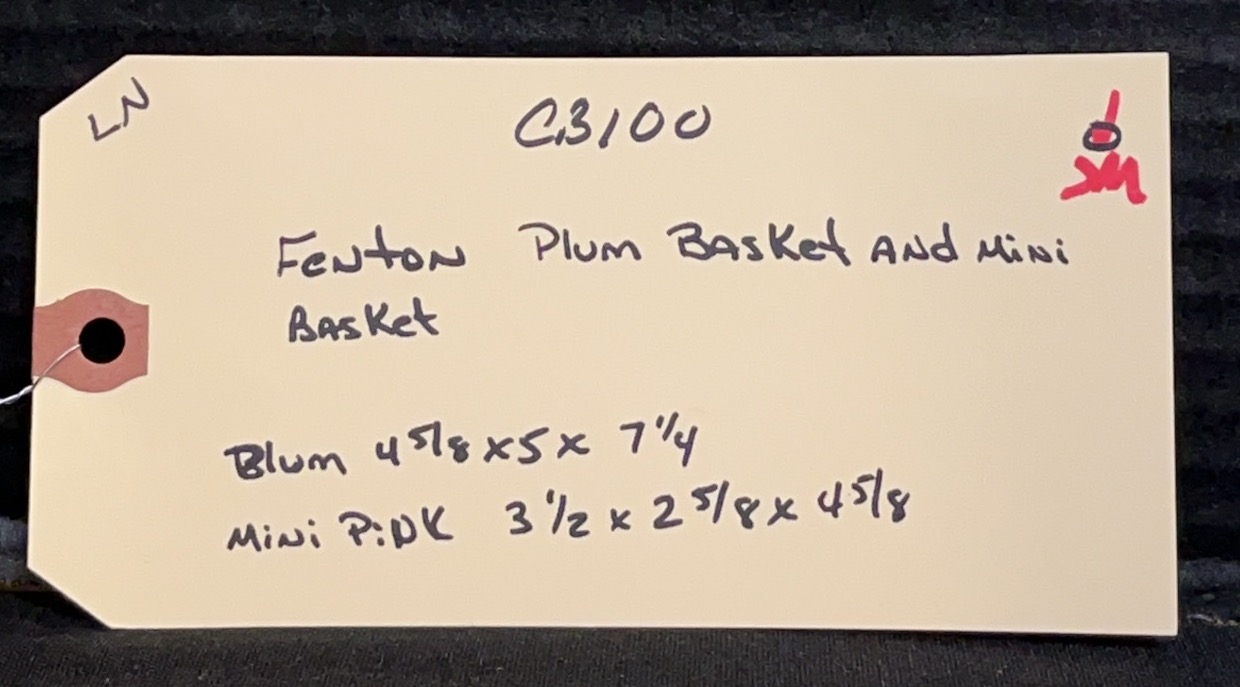 LN
C3100
SM
Fenton Plum Basket and Mini
Basket
Blum 4 5/8 x 5 x 7 1/4
Mini Pink 3 1/2 x 2 5/8 x 4 5/8